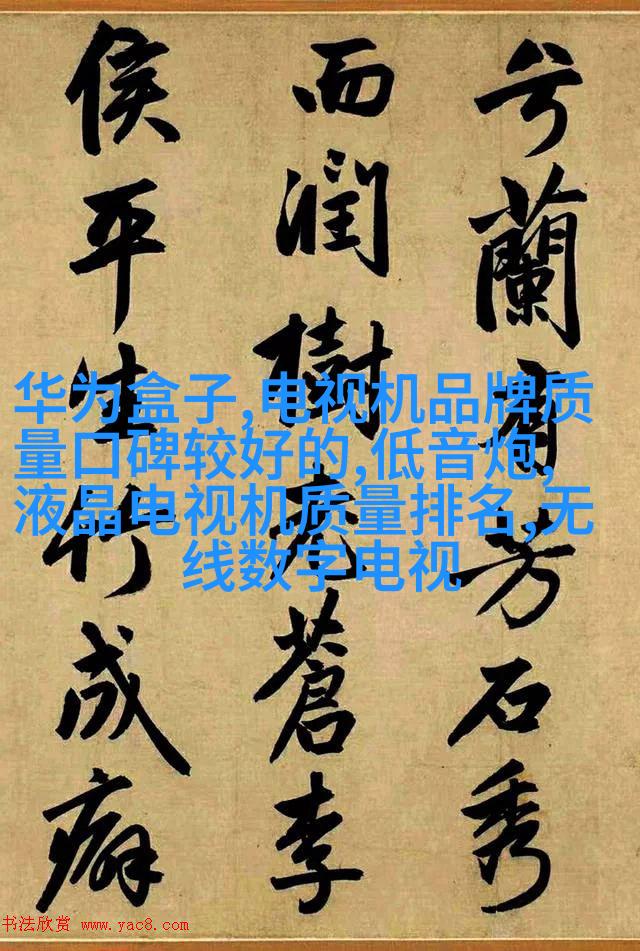 兮蘭有芳石秀
而潤樹老蒼李
侯平生竹成癖
华为盒子,电视机品牌质
量口碑较好的,低音炮,
液晶电视机质量排名,无
线数字电视
书法欣赏 www.yac8.com